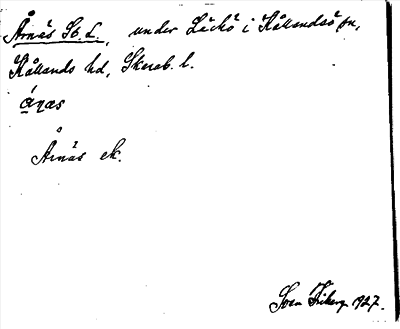 Årnäs Sb. L., under Läckö i Kållandsö sn,
Kållands hd, Skarab. l.
ánæs
Årnäs ek.
Sven Friberg 1927.